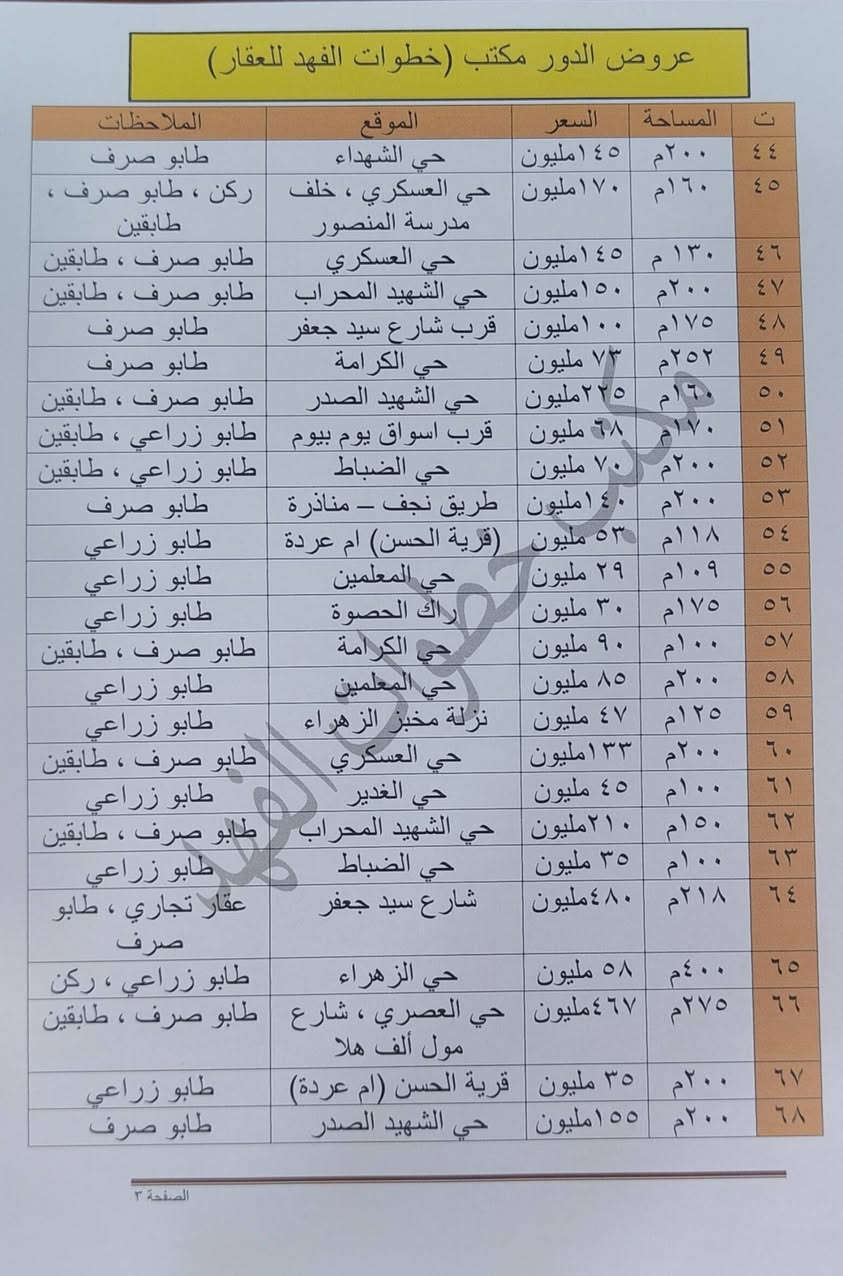 عروض الدور مكتب (خطوات الفهد للعقار)
ت المساحة السعر الموقع الملاحظات
٤٤ ٢٠٠م ١٤٥مليون حي الشهداء طابو صرف
٤٥ ١٦٠م ١٧٠مليون حي العسكري ، خلف ركن ، طابو صرف ،
مدرسة المنصور طابقين
٤٦ ١٣٠ م ١٤٥مليون حي العسكري طابو صرف ، طابقين
٤٧ ٢٠٠م ١٥٠مليون حي الشهيد المحراب طابو صرف ، طابقين
٤٨ ١٧٥م ١٠٠مليون قرب شارع سيد جعفر طابو صرف
٤٩ ٢٥٢م ٧٣ مليون حي الكرامة طابو صرف
٥٠ ١٦٠م ٢٢٥مليون حي الشهيد الصدر طابو صرف ، طابقين
٥١ ١٧٠م ٦٨ مليون قرب اسواق يوم بيوم طابو زراعي ، طابقين
٥٢ ٢٠٠م ٧٠ مليون حي الضباط طابو زراعي ، طابقين
٥٣ ٢٠٠م ١٤٠مليون طريق نجف – مناذرة طابو صرف
٥٤ ١١٨م ٥٣ مليون (قرية الحسن) ام عردة طابو زراعي
٥٥ ١٠٩م ٢٩ مليون حي المعلمين طابو زراعي
٥٦ ١٧٥م ٣٠ مليون راك الحصوة طابو زراعي
٥٧ ١٠٠م ٩٠ مليون حي الكرامة طابو صرف ، طابقين
٥٨ ٢٠٠م ٨٥ مليون حي المعلمين طابو زراعي
٥٩ ١٢٥م ٤٧ مليون نزلة مخبز الزهراء طابو زراعي
٦٠ ٢٠٠م ١٣٣مليون حي العسكري طابو صرف ، طابقين
٦١ ١٠٠م ٤٥ مليون حي الغدير طابو زراعي
٦٢ ١٥٠م ٢١٠مليون حي الشهيد المحراب طابو صرف ، طابقين
٦٣ ١٠٠م ٣٥ مليون حي الضباط طابو زراعي
٦٤ ٢١٨م ٤٨٠مليون شارع سيد جعفر عقار تجاري ، طابو
صرف
٦٥ ٤٠٠م ٥٨ مليون حي الزهراء طابو زراعي ، ركن
٦٦ ٢٧٥م ٤٦٧مليون حي العصري ، شارع طابو صرف ، طابقين
مول ألف هلا
٦٧ ٢٠٠م ٣٥ مليون قرية الحسن (ام عردة) طابو زراعي
٦٨ ٢٠٠م ١٥٥مليون حي الشهيد الصدر طابو صرف
مكتب خطوات الفهد
الصفحة ٣